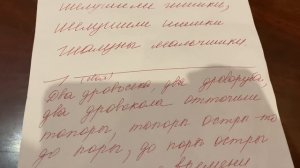 шелушили шишки,
Шелушили шишки
шалуны мальчишки
Два дровосека, два дроворуба,
два дровокола отточили
топоры, топоры остры то
до поры, до поры остры
времени